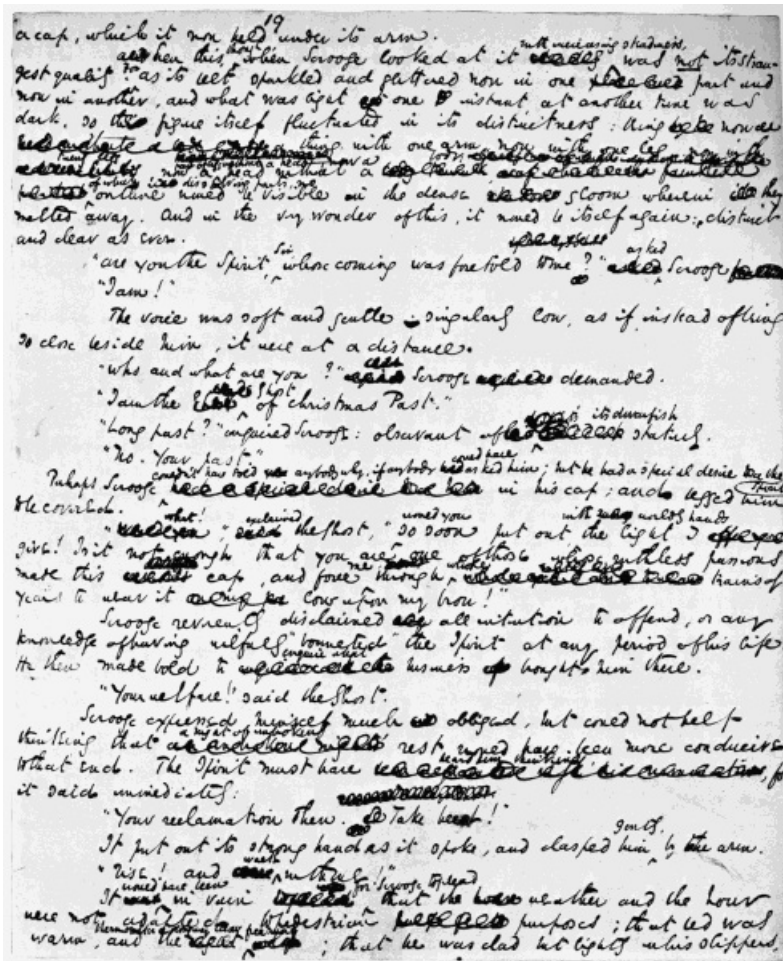 19
a cap, which it now held under its arm.
Even this, though, when Scrooge looked at it with increasing steadiness, was not its stran-
gest quality. For as its belt sparkled and glittered now in one part and
now in another, and what was light one instant at another time was
dark, so the figure itself fluctuated in its distinctness: being now a
thing with one arm, now with one leg, now with
twenty legs, now a pair of legs without a head, now a head without a body:
of which dissolving parts, no outline would be visible in the dense gloom wherein they
melted away. And in the very wonder of this, it would be itself again; distinct
and clear as ever.
"Are you the Spirit, Sir, whose coming was foretold to me?" asked Scrooge
"I am!"
The voice was soft and gentle. Singularly low, as if instead of being
so close beside him, it were at a distance.
"Who and what are you?" Scrooge demanded.
"I am the Ghost of Christmas Past."
"Long past?" inquired Scrooge: observant of its dwarfish stature.
"No. Your past."
Perhaps Scrooge couldn't have told anybody why, if anybody could have asked him; but he had a special desire to see the Spirit
in his cap; and begged him
to be covered.
"What!" exclaimed the Ghost, "would you so soon put out, with worldly hands, the light I
give! Is it not enough that you are one of those whose passions
made this cap, and force me through whole trains of
years to wear it low upon my brow!"
Scrooge reverently disclaimed all intention to offend, or any
knowledge of having wilfully "bonneted" the Spirit at any period of his life.
He then made bold to inquire what business brought him there.
"Your welfare!" said the Ghost.
Scrooge expressed himself much obliged, but could not help
thinking that a night of unbroken rest would have been more conducive
to that end. The Spirit must have heard him thinking, for
it said immediately:
"Your reclamation then. Take heed!"
It put out its strong hand as it spoke, and clasped him gently by the arm.
"Rise! and walk with me!"
It would have been in vain for Scrooge to plead that the weather and the hour
were not adapted to pedestrian purposes; that bed was
warm, and the thermometer a long way below freezing; that he was clad but lightly in his slippers,